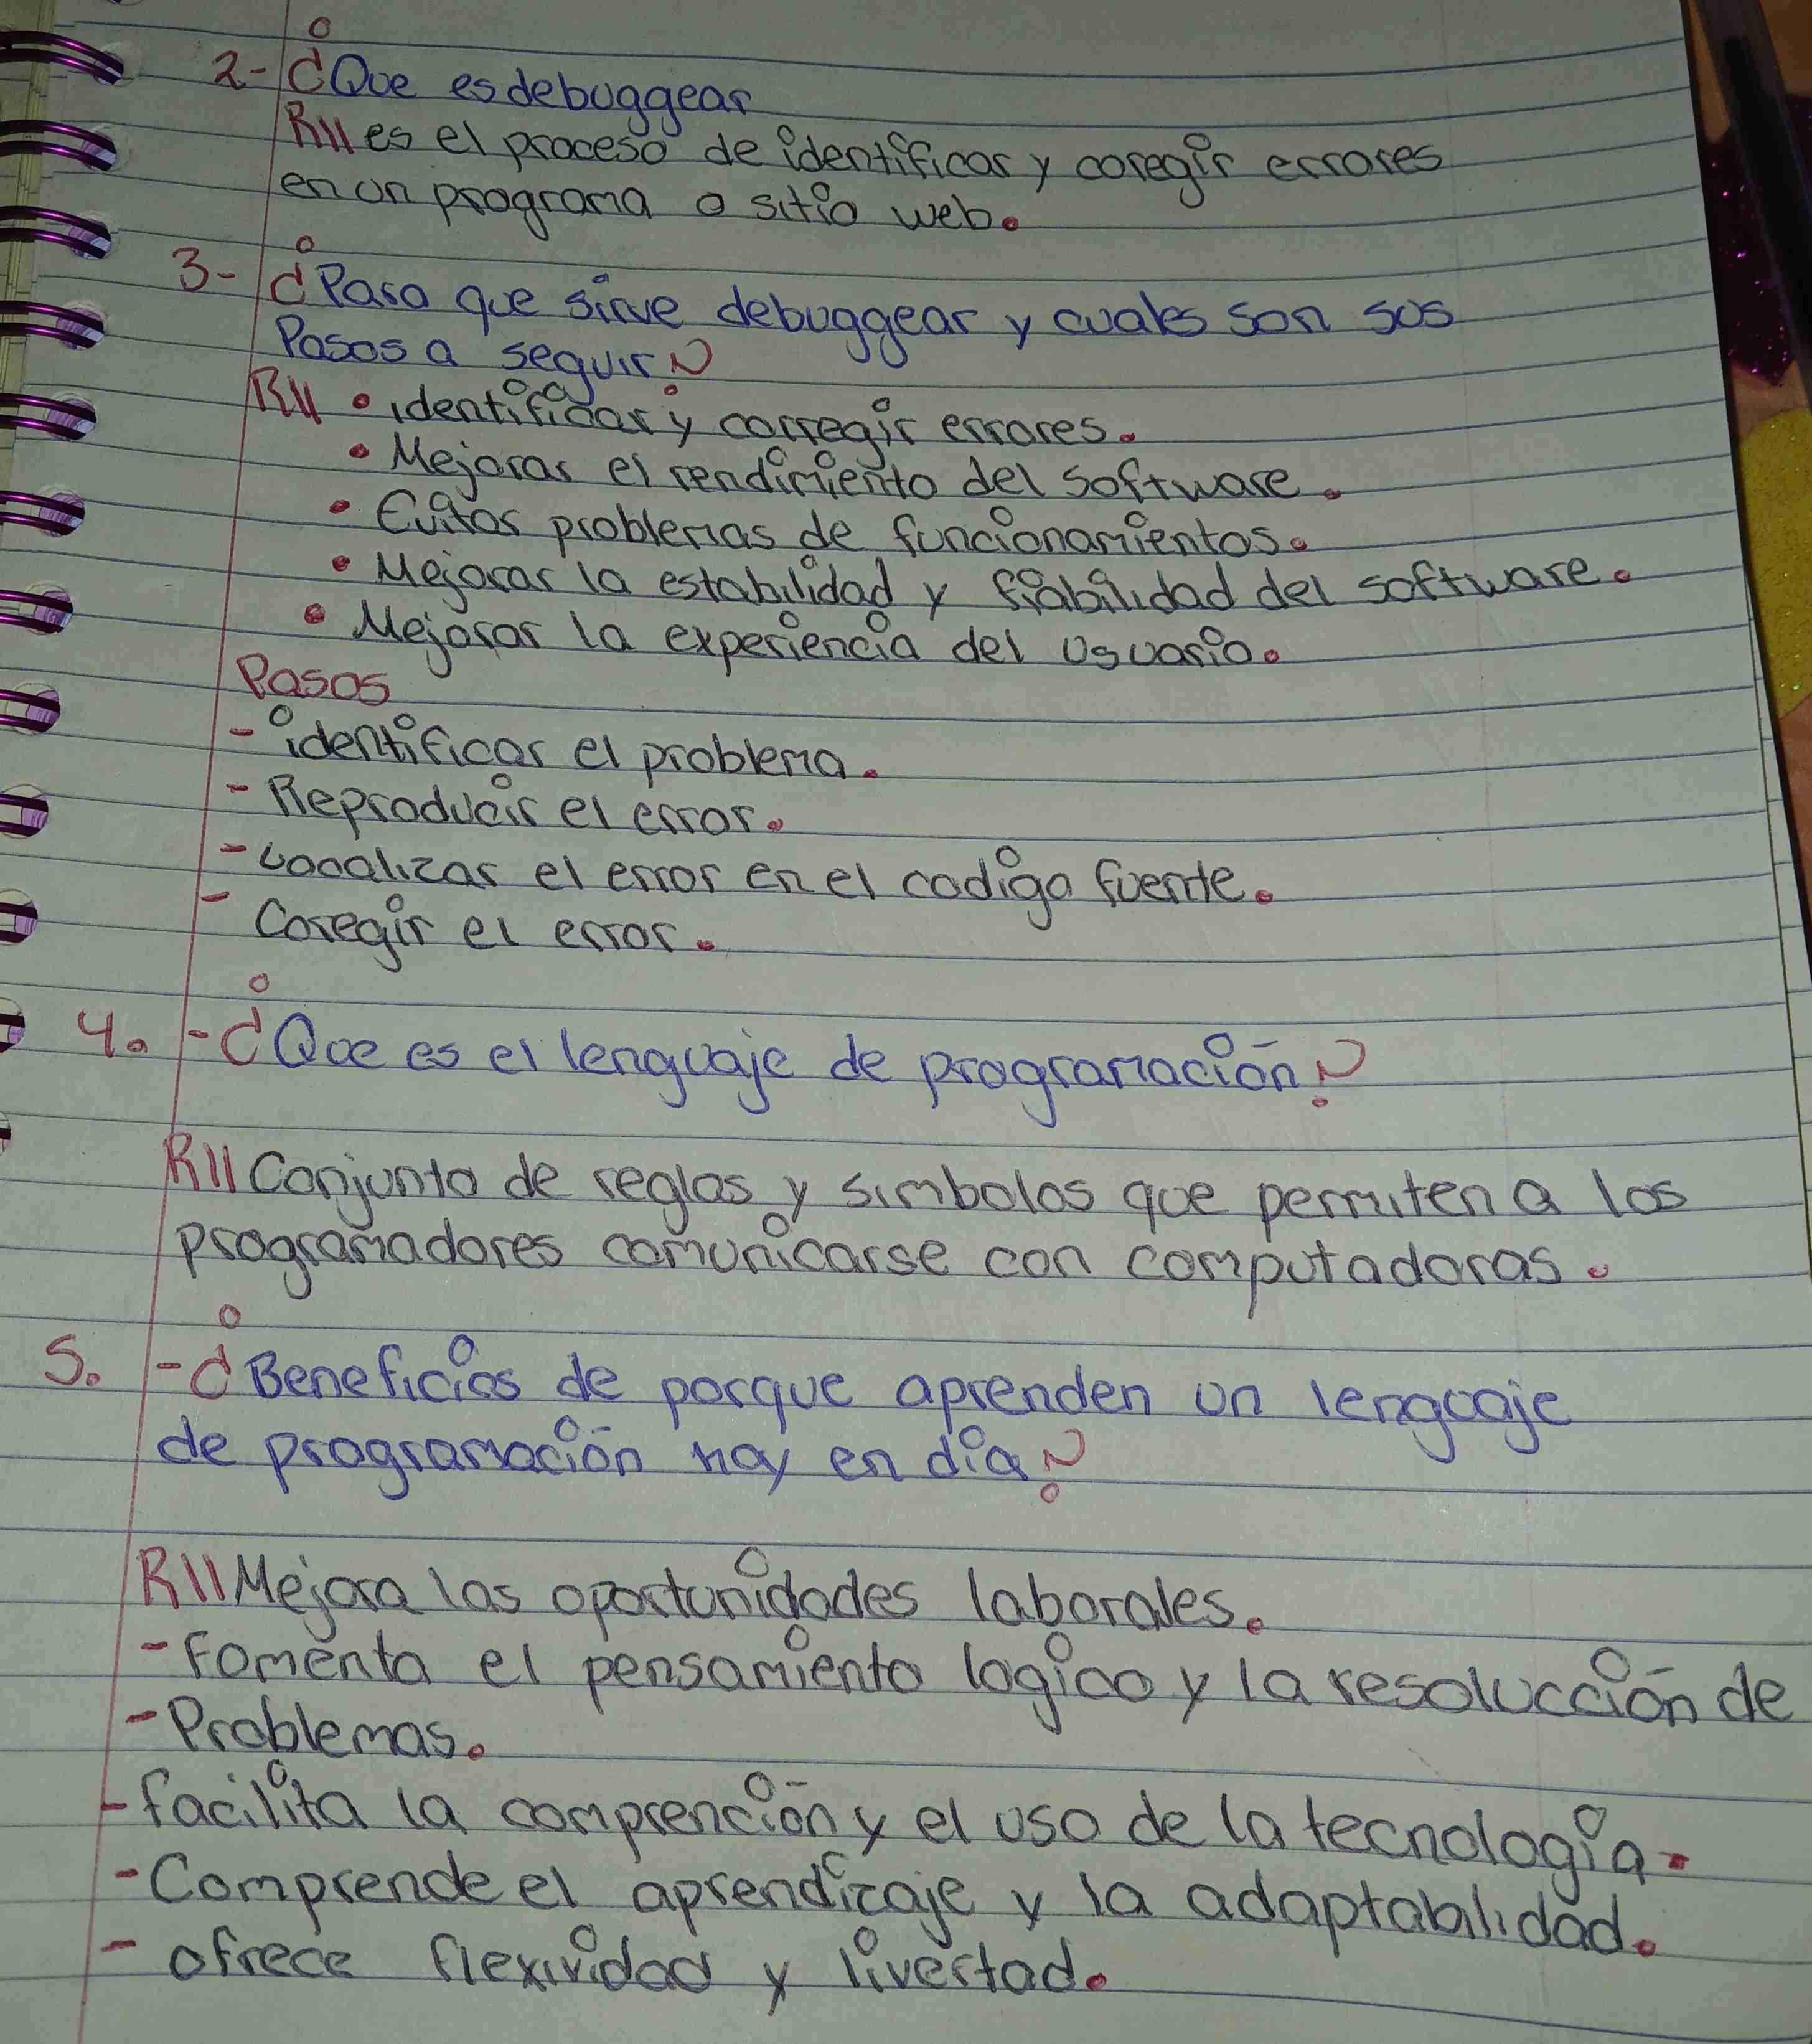 2- ¿Que es debuggear
R// es el proceso de identificar y coregir errores
en un programa o sitio web.
3- ¿Para que sirve debuggear y cuales son sus
Pasos a seguir?
R// • identificar y corregir errores.
• Mejorar el rendimiento del software.
• Evitar problemas de funcionamientos.
• Mejorar la estabilidad y fiabilidad del software.
• Mejorar la experiencia del usuario.
Pasos
- identificar el problema.
- Reproducir el error.
- Localizar el error en el codigo fuente.
- Coregir el error.
4. -¿Que es el lenguaje de programación?
R// Conjunto de reglas y simbolos que permiten a los
programadores comunicarse con computadoras.
5. -¿Beneficios de porque aprenden un lenguaje
de programación hay en día?
R// Mejora las oportunidades laborales.
- Fomenta el pensamiento logico y la resolucción de
- Problemas.
- facilita la comprención y el uso de la tecnología.
- Comprende el aprendizaje y la adaptabilidad.
- ofrece flexividad y livertad.